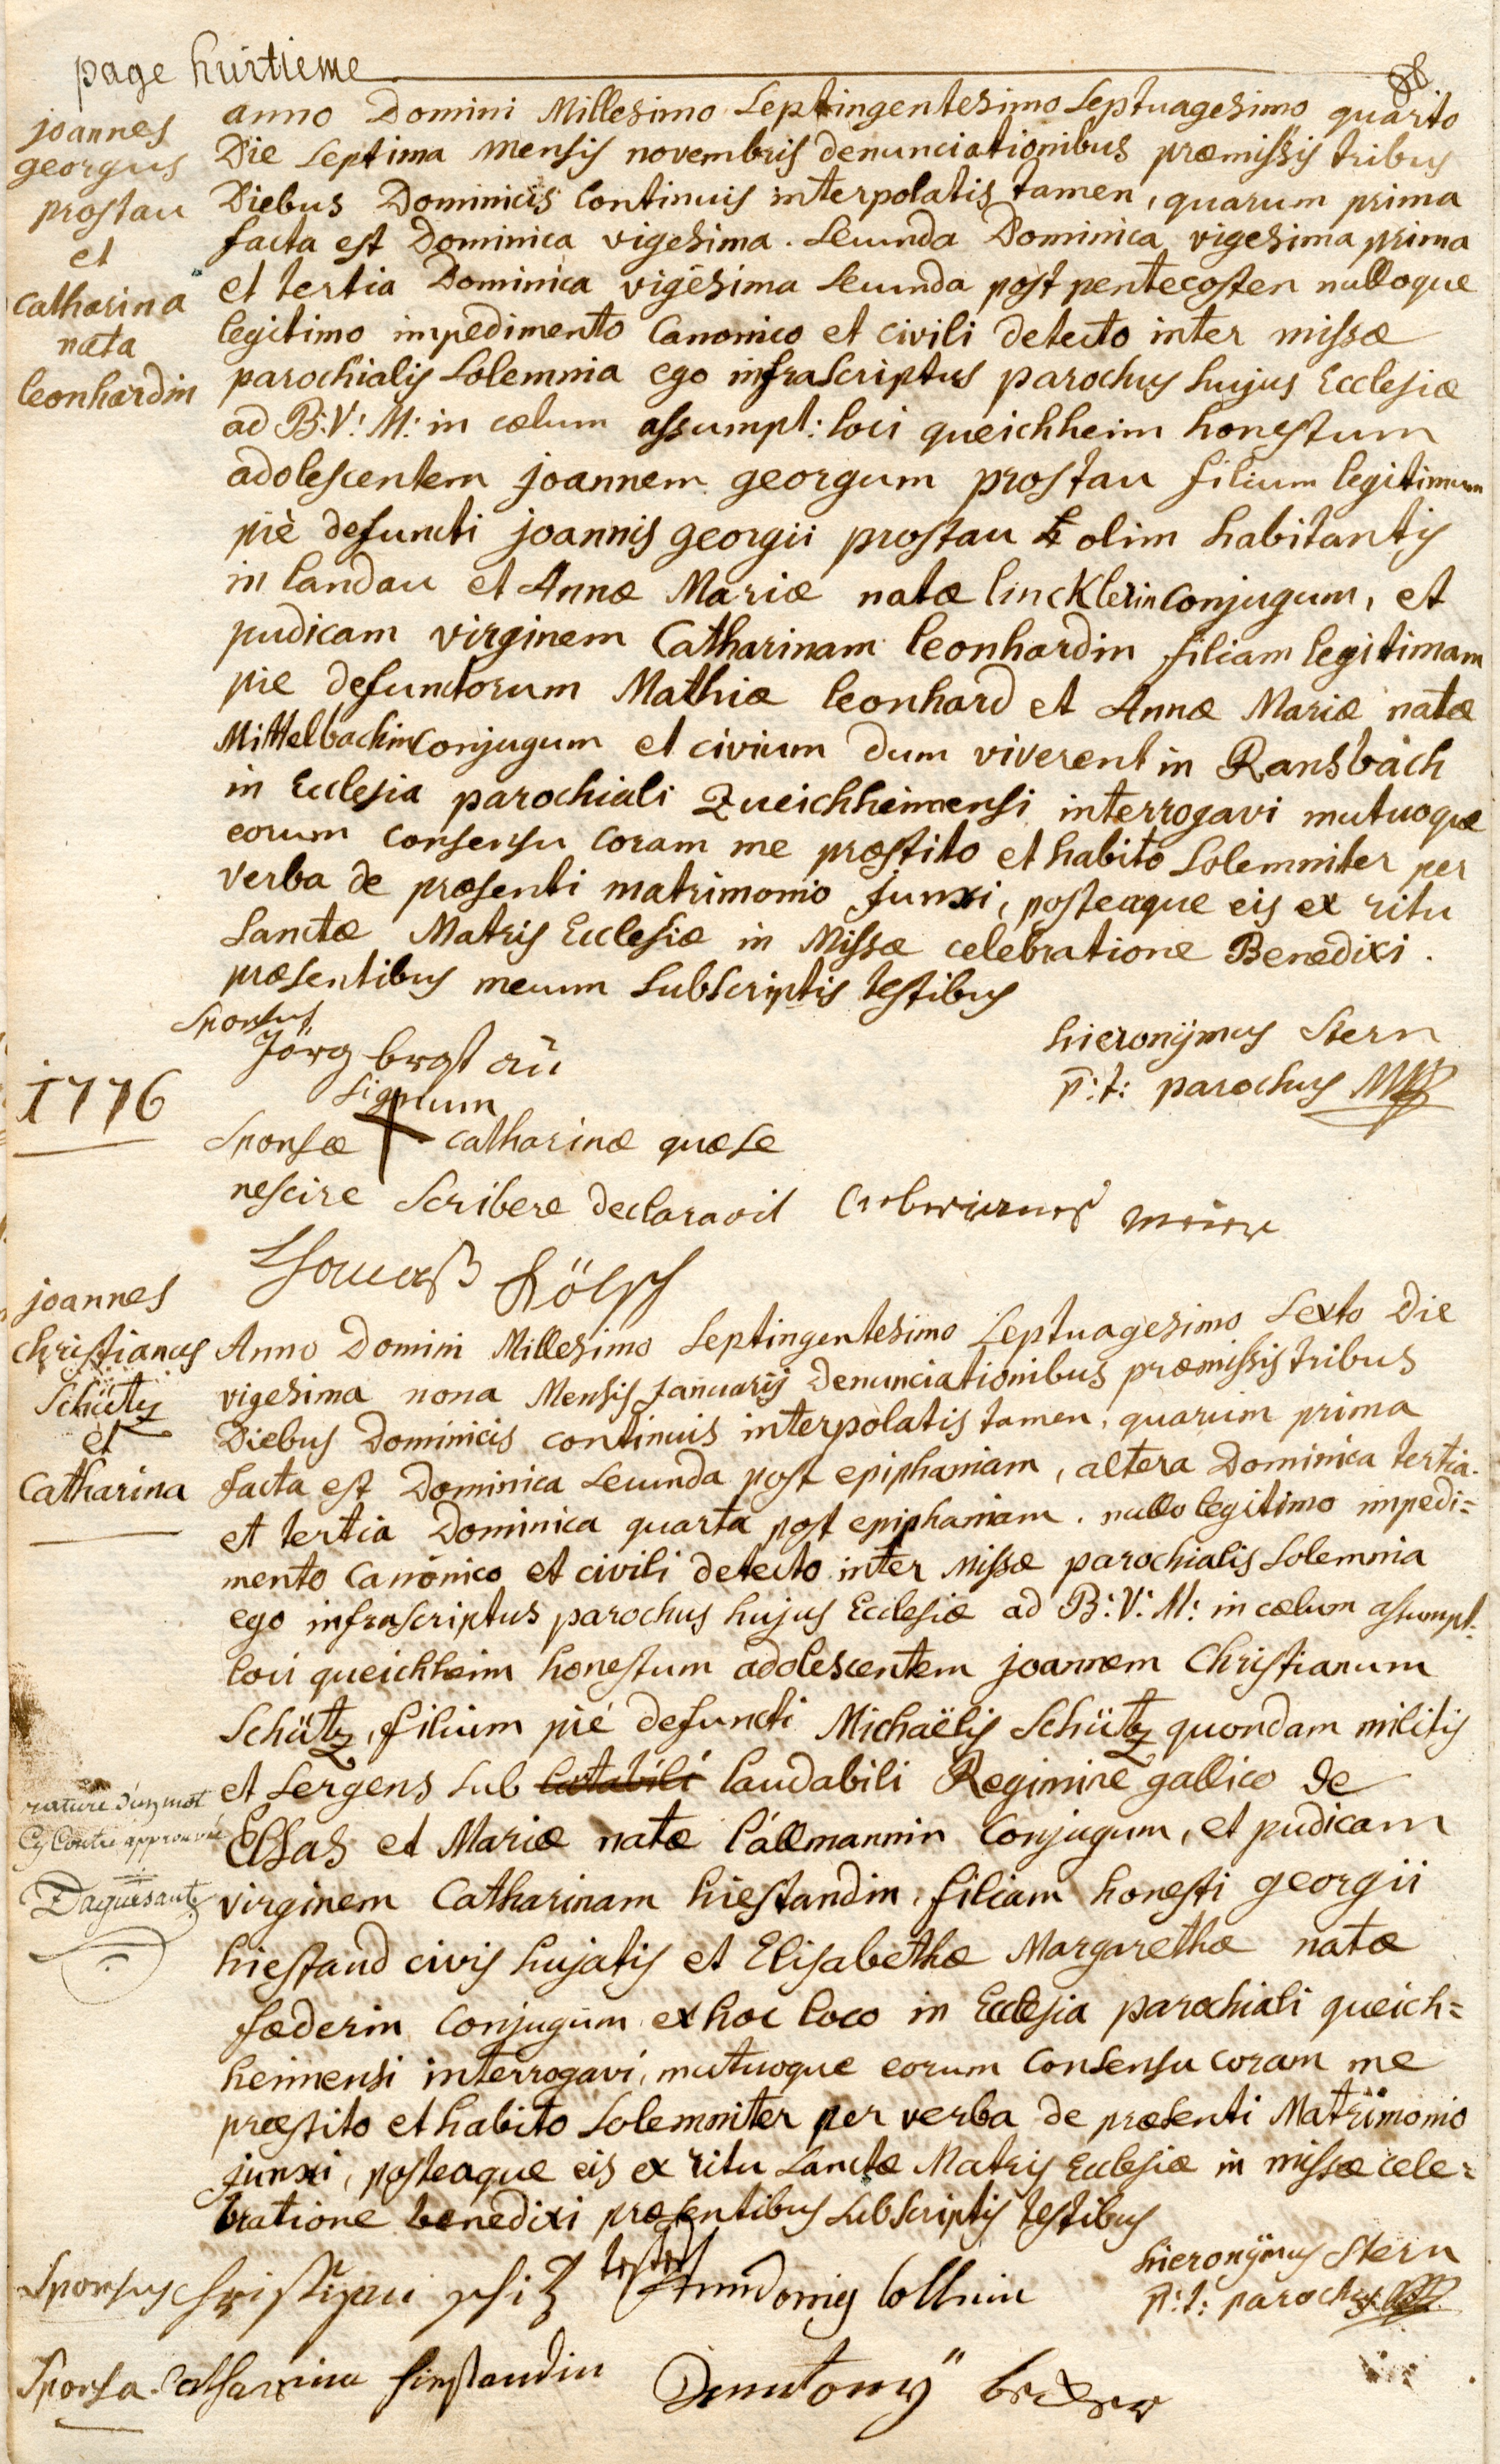 page huitieme
joannes
georgus
prostau
et
catharina
nata
leonhardin
anno Domini Millesimo Septingentesimo Septuagesimo quarto
Die Septima mensis novembris denunciationibus præmissis tribus
Diebus Dominicis continuis interpolatis tamen, quarum prima
facta est Dominica vigesima. Secunda Dominica vigesima prima
et tertia Dominica vigesima secunda post pentecosten nulloque
legitimo impedimento Canonico et civili detecto inter missæ
parochialis Solemnia ego infraScriptus parochus hujus Ecclesiæ
ad B: V: M: in cœlum assumpt: loci queichheim honestum
adolescentem joannem georgum prostau filium legitimum
piè defuncti joannis georgii prostau olim habitantis
in landau et Annæ Mariæ natæ lincklerin conjugum, et
pudicam virginem Catharinam leonhardin filiam legitimam
pie defunctorum Mathiæ leonhard et Annæ Mariæ natæ
Mittelbachin conjugum et civium dum viverent in Ransbach
in Ecclesia parochiali Queichheimensi interrogavi mutuoque
eorum consensu coram me præstito et habito Solemniter per
verba de præsenti matrimonio junxi, posteaque eis ex ritu
Sanctæ Matris Ecclesiæ in Missæ celebratione Benedixi.
præsentibus mecum subscriptis testibus
Sponsus
Jörg brost aŭ
hieronÿmus Stern
p: t: parochus
1776
Signum
Sponsæ + catharinæ quæ se
nescire Scribere declaravit
Thomaß Kölsch
joannes
christianus
Schütz
et
Catharina
Anno Domini Millesimo Septingentesimo Septuagesimo Sexto Die
vigesima nona Mensis Januarij Denunciationibus præmissis tribus
Diebus Dominicis continuis interpolatis tamen, quarum prima
facta est Dominica secunda post epiphaniam, altera Dominica tertia.
et tertia Dominica quarta post epiphaniam. nullo legitimo impedi=
mento Canonico et civili detecto inter Missæ parochialis Solemnia
ego infraScriptus parochus hujus Ecclesiæ ad B: V: M: in cœlum assumpt:
loci queichheim honestum adolescentem joannem Christianum
Schütz, filium pié defuncti Michaëlis Schütz quondam militis
et sergens sub laudabili Regimine gallico de
Elsas et Mariæ natæ Callmannin conjugum, et pudicam
rature d'un mot
Cy Contre approuvée
Daguesantz
virginem Catharinam hiestandin, filiam honesti georgii
hiestand civis hujatis et Elisabethæ Margarethæ natæ
fœderin conjugum ex hoc loco in Ecclesia parochiali queich=
heimensi interrogavi, mutuoque eorum consensu coram me
præstito et habito Solemniter per verba de præsenti Matrimonio
junxi, posteaque eis ex ritu Sanctæ Matris Ecclesiæ in missæ cele=
bratione benedixi præsentibus subscriptis testibus
hieronÿmus Stern
p: t: parochus
Sponsus Christian schitz testes
Sponsa. Catharina hiestandin